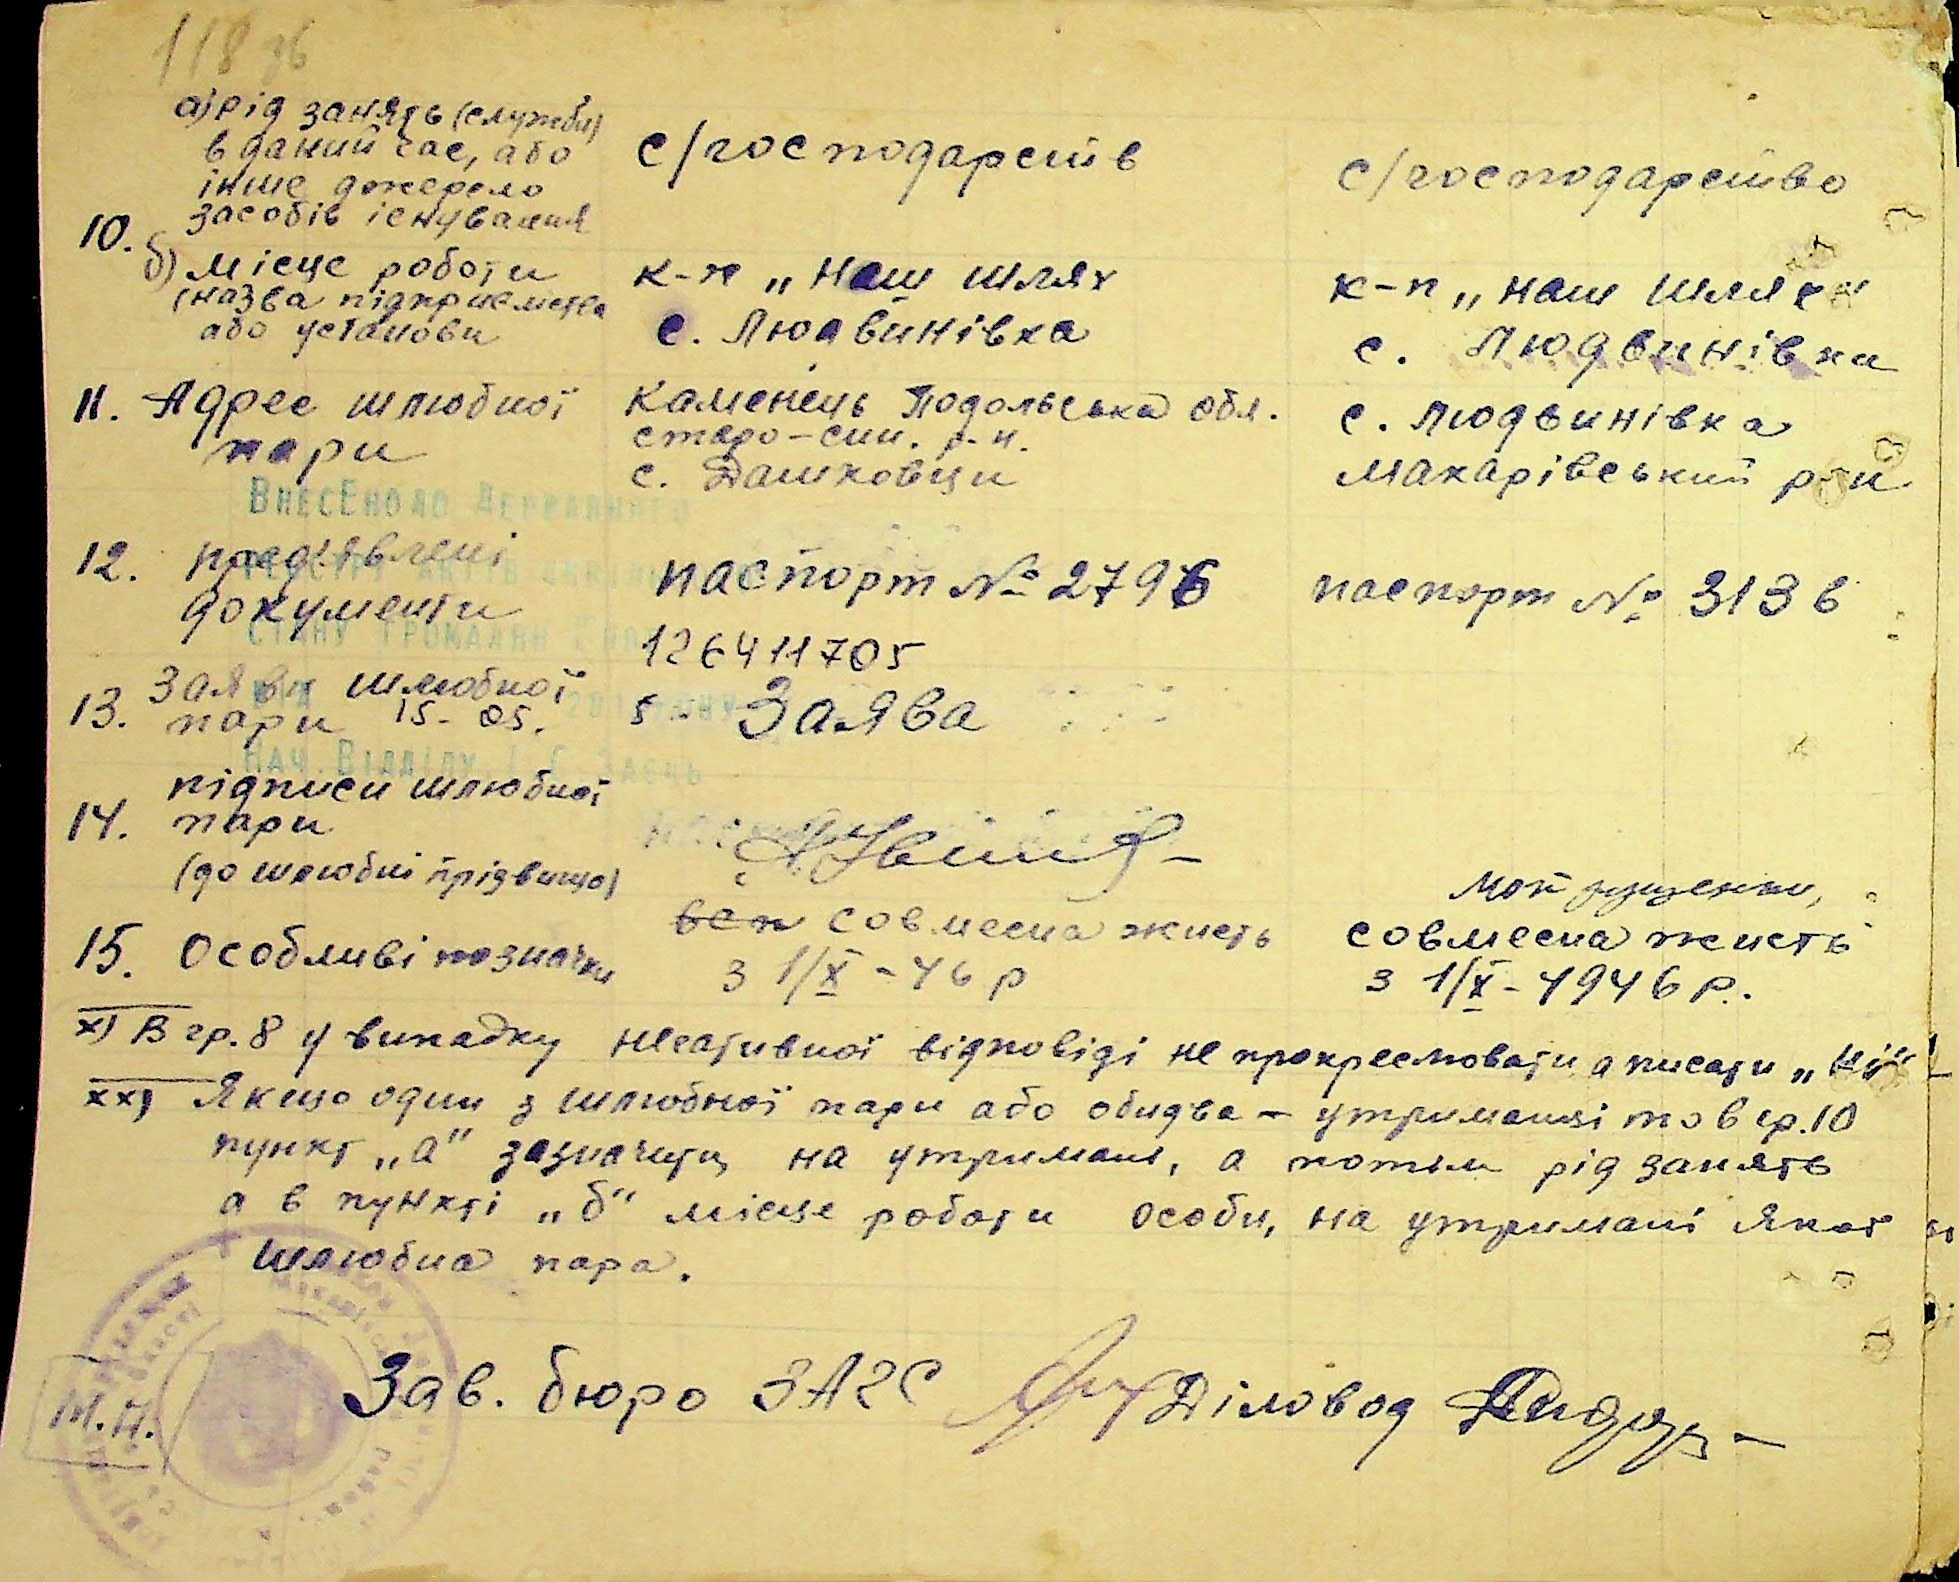 118 зв
а) рід занять (служби)
в даний час, або
інше джерело
засобів існування
с/господарств
с/господарство
10.
б) місце роботи
(назва підприємства
або установи
к-п „наш шлях
с. Людвинівка
к-п „наш шлях"
с. Людвинівка
11. Адрес шлюбної
пари
Каменець Подольська обл.
старо-син. р-н.
с. Дашковци
с. Людвинівка
Макарівський р-н
Внесено до Державного
12. пред'явлені
документи
паспорт № 2796
126411705
паспорт № 3136
стану громадян
13. Заяви шлюбної
пари 15-05.
5 - Заява
Нач. Відділу І.Є. Заєць
14. підписи шлюбної
пари
(до шлюбні прізвища)
15. Особливі позначки
совмесна жисть
з 1/X - 46 р
совмесна жисть
з 1/X - 1946 р.
х) В гр. 8 у випадку негативної відповіді не прокреслювати а писати „Ні"
хх) Якщо один з шлюбної пари або обидва - утриманці то в гр. 10
пункт „а" зазначити на утримані, а потім рід занять
а в пункті „б" місце роботи особи, на утримані якої
шлюбна пара.
М.П.
Зав. бюро ЗАГС
Діловод